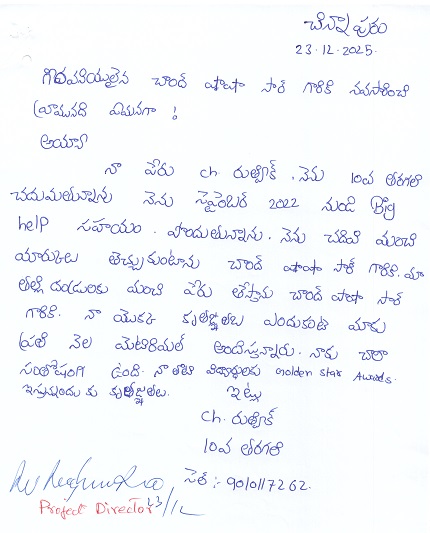 చిన్నాపురం
23.12.2025.
గౌరవనీయులైన చాంద్ పాషా సార్ గారికి నమస్కరించి
వ్రాయునది ఏమనగా !
అయ్యా
నా పేరు ch. రుత్విక్. నేను 10వ తరగతి
చదువుతున్నాను నేను సెప్టెంబర్ 2022 నుండి Big
help సహాయం. పొందుతున్నాను. నేను చదివి మంచి
మార్కులు తెచ్చుకుంటాను చాంద్ పాషా సార్ గారికి. మా
తల్లి దండ్రులకు మంచి పేరు తెస్తాను చాంద్ పాషా సార్
గారికి. నా యొక్క కృతజ్ఞతలు ఎందుకంటే మాకు
ప్రతి నెల మెటీరియల్ అందిస్తున్నారు. నాకు చాలా
సంతోషంగా ఉంది. నా తోటి విద్యార్థులకు Golden Star Awards.
ఇస్తున్నందుకు కృతజ్ఞతలు.
ఇట్లు
Ch. రుత్విక్
10వ తరగతి
సెల్ :- 9010117262.
23/12
Project Director